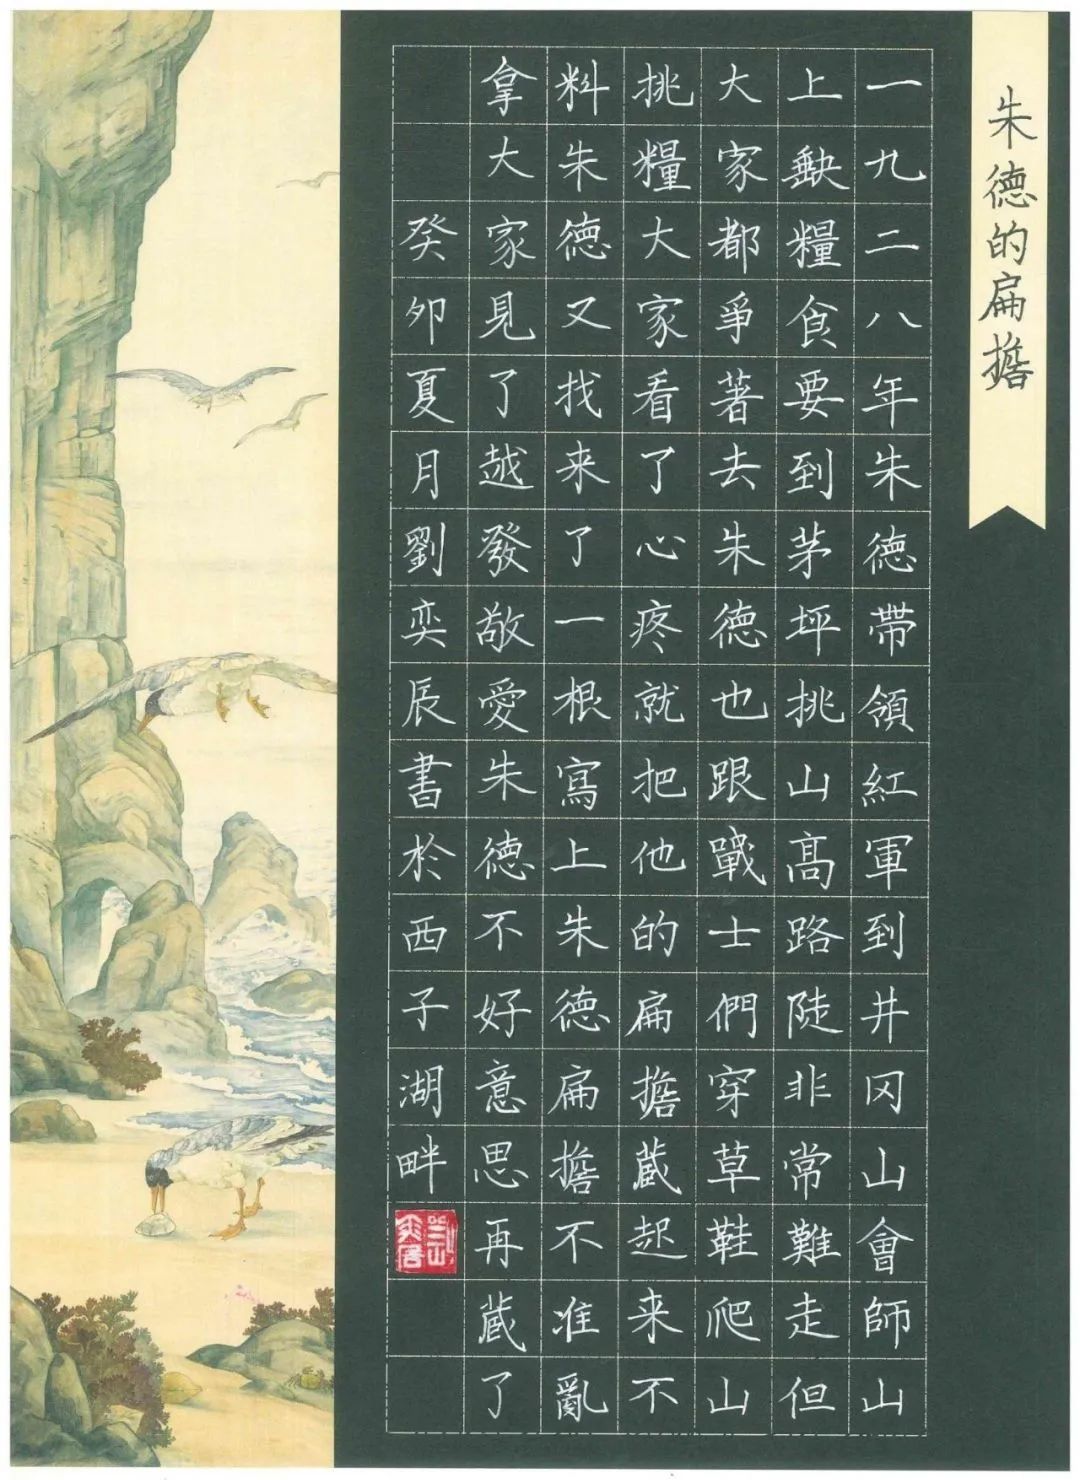 朱德的扁擔
一九二八年朱德帶領紅軍到井冈山會師山
上缺糧食要到茅坪挑山高路陡非常難走但
大家都爭著去朱德也跟戰士們穿草鞋爬山
挑糧大家看了心疼就把他的扁擔藏起来不
料朱德又找来了一根寫上朱德扁擔不准亂
拿大家見了越發敬愛朱德不好意思再藏了
癸卯夏月劉奕辰書於西子湖畔